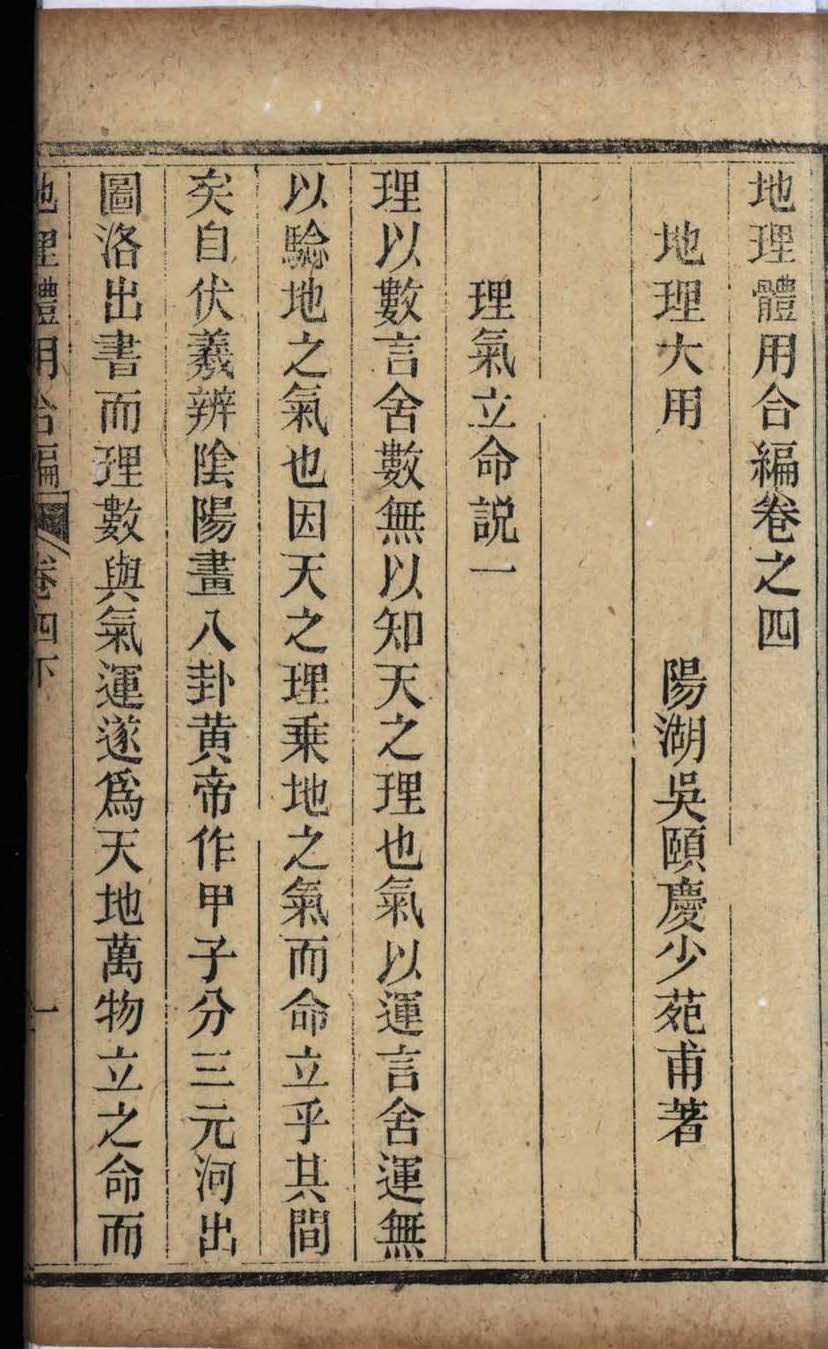 地理體用合編卷之四
地理大用　陽湖吳頤慶少苑甫著
理氣立命説一
理以數言舍數無以知天之理也氣以運言舍運無
以驗地之氣也因天之理乗地之氣而命立乎其間
矣自伏羲辨陰陽畫八卦黄帝作甲子分三元河出
圖洛出書而理數與氣運遂爲天地萬物立之命而
地理體用合編 卷四下 一